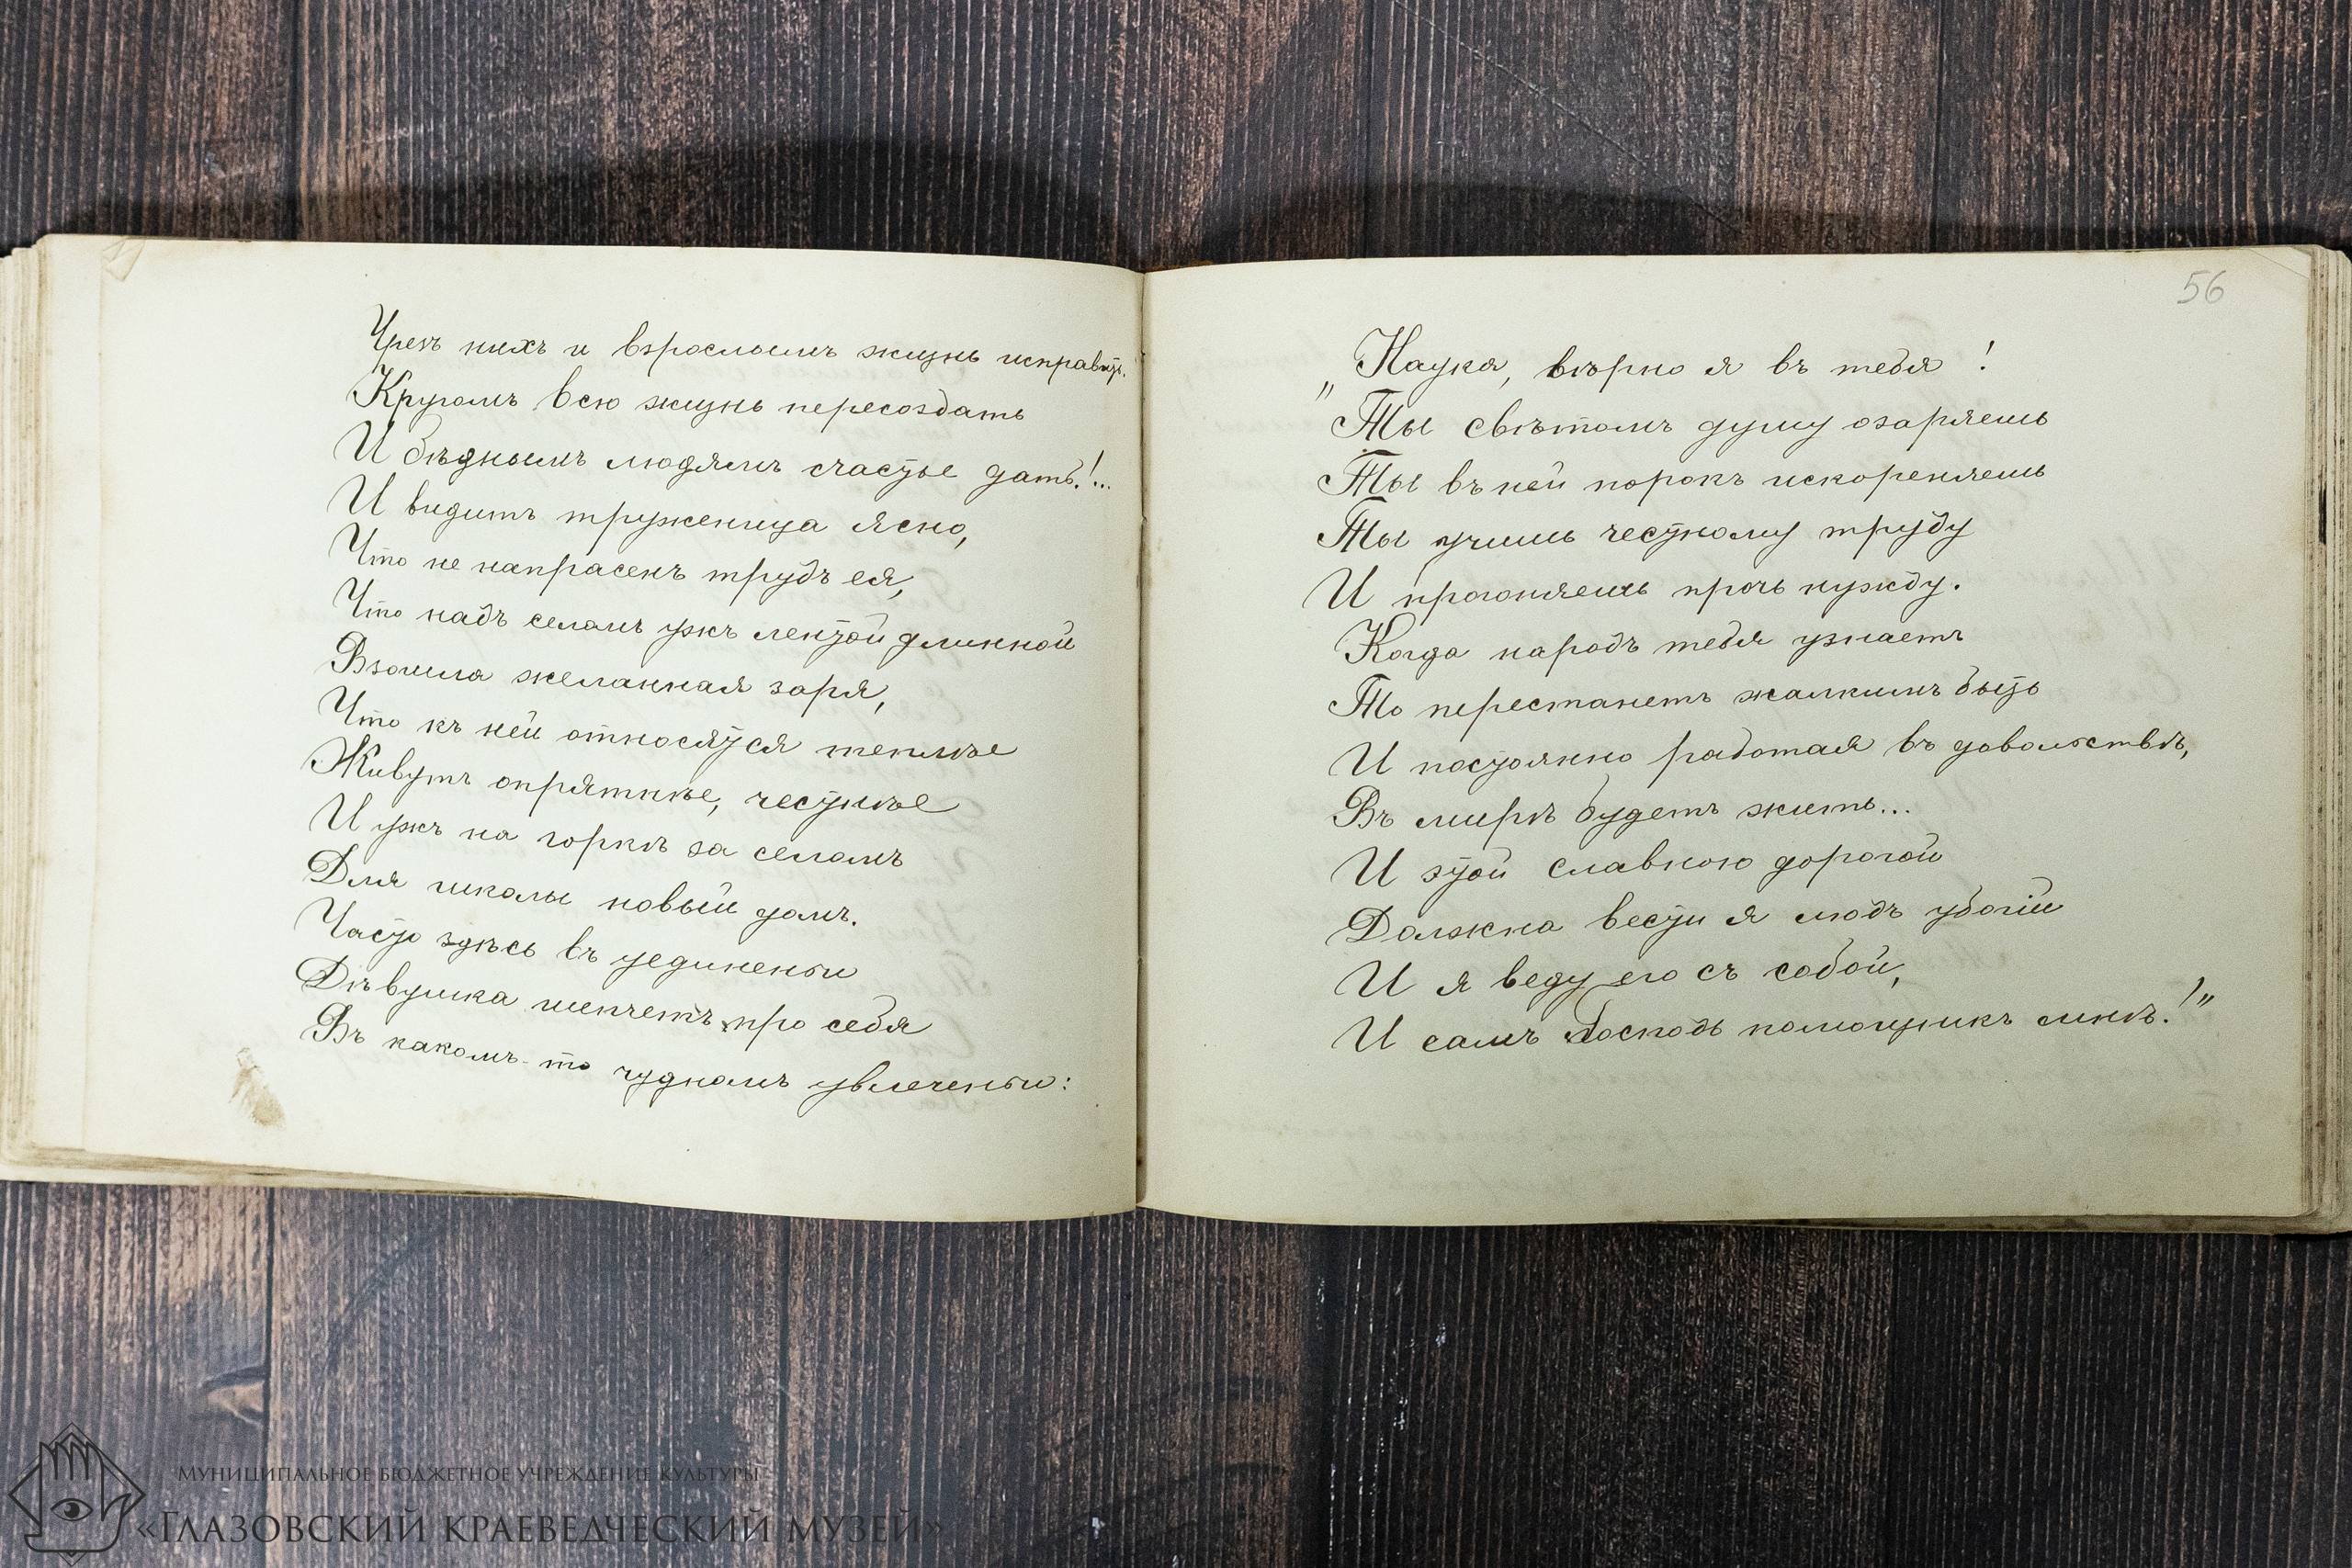 Чрезъ нихъ и взрослымъ жизнь исправить.
Кругомъ всю жизнь пересоздать
И бѣднымъ людямъ счастье дать!...
И видитъ труженица ясно,
Что не напрасенъ трудъ ея,
Что надъ селомъ ужъ лентой длинной
Взошла желанная заря,
Что къ ней относятся теплѣе
Живутъ опрятнѣе, честнѣе
И ужъ на горкѣ за селомъ
Для школы новый домъ.
Часто здѣсь въ уединеньи
Дѣвушка шепчетъ про себя
Въ какомъ-то чудномъ увлеченьи:
56
„Наука, вѣрю я въ тебя!
Ты свѣтомъ душу озаряешь
Ты въ ней порокъ искореняешь
Ты учишь честному труду
И прогоняешь прочь нужду.
Когда народъ тебя узнаетъ
То перестанетъ жалкимъ быть
И постоянно работая въ довольствѣ,
Въ мирѣ будетъ жить...
И этой славною дорогой
Должна вести я людъ убогій
И я веду его съ собой,
И самъ Господь помощникъ мнѣ!"
Муниципальное бюджетное учреждение культуры
«Глазовский краеведческий музей»